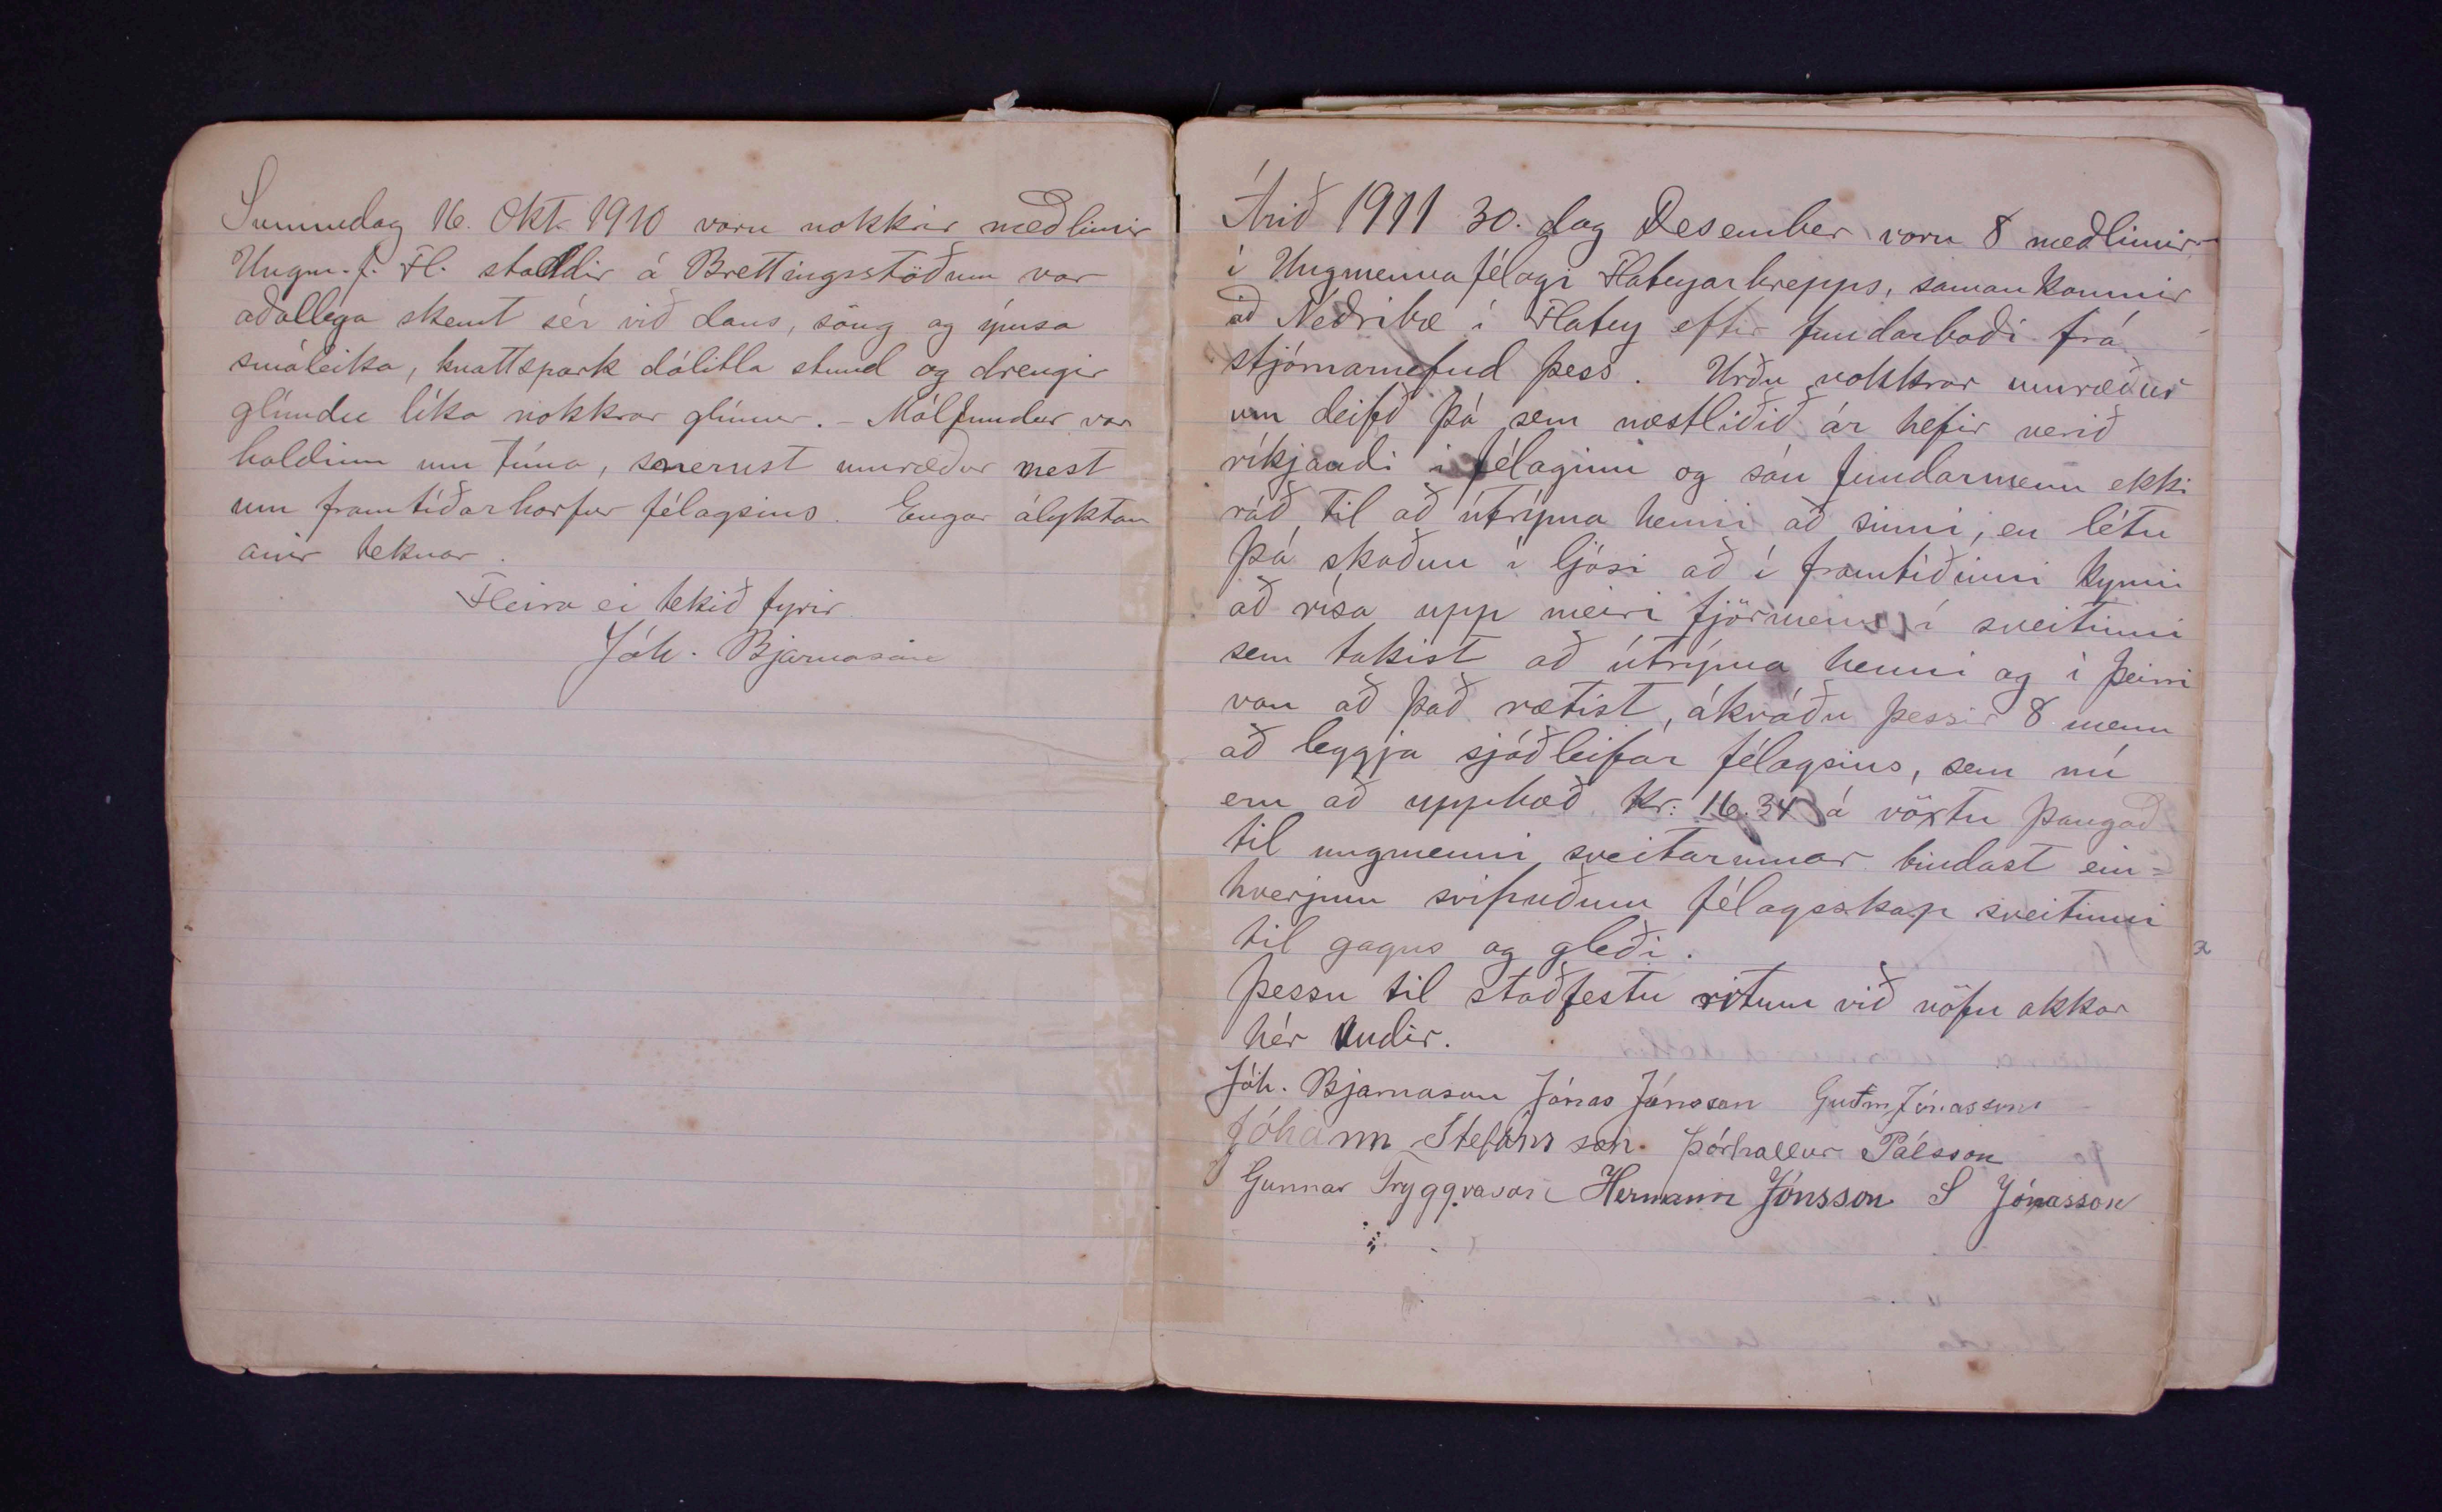 Sunnudag 16. Okt. 1910 voru nokkrir meðlimir
Ungm.f. Fl. staddir á Brettingsstöðum var
aðallega skemt sér við dans, söng og ýmsa
smáleika, knattspark dálitla stund og drengir
glímdu líka nokkrar glímur. - Málfundur var
haldinn um tíma, snerust umræður mest
um framtíðarhorfur félagsins. Engar ályktan
anir teknar.
Fleira ei tekið fyrir
Jóh. Bjarnason
Árið 1911 30. dag Desember voru 8 meðlimir
í Ungmennafélagi Flateyarhrepps, saman komnir
að Neðribæ í Flatey eftir fundarboði frá
stjórnarnefnd þess. Urðu nokkrar umræður
um deifð þá sem næstliðið ár hefir verið
ríkjandi í félaginu og sáu fundarmenn ekki
ráð til að útrýma henni að sinni, en létu
þá skoðun í ljósi að í framtíðinni kynni
að rísa upp meiri fjörmenn í sveitinni
sem takist að útrýma henni og í þeirri
von að það rætist, ákváðu þessir 8 menn
að leggja sjóðleifar félagsins, sem nú
eru að upphæð kr: 16.34 á vöxtu þangað
til ungmenni sveitarinnar bindast ein=
hverjum svipuðum félagsskap sveitinni
til gagns og gleði.
Þessu til staðfestu ritum við nöfn okkar
hér undir.
Jóh. Bjarnason Jónas Jónsson Guðm Jónasson
Jóhann Stefánsson. Þórhallur Pálsson
Gunnar Tryggvason Hermann Jónsson S Jónasson